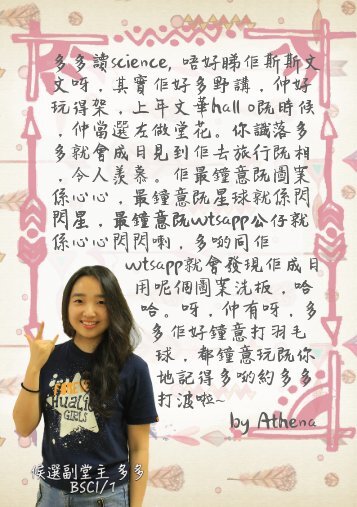 多多讀science, 唔好睇佢斯斯文
文呀，其實佢好多野講，仲好
玩得架，上年文華hall o既時候
，仲當選左做堂花。你識落多
多就會成日見到佢去旅行既相
，令人羨慕。佢最鐘意既圖案
係心心，最鐘意既星球就係閃
閃星，最鐘意既wtsapp公仔就
係心心閃閃喇，多啲同佢
wtsapp就會發現佢成日
用呢個圖案洗板，哈
哈。呀，仲有呀，多
多佢好鐘意打羽毛
球，都鐘意玩既你
地記得多啲約多多
打波啦~
by Athena
Hualien
GIRLS
候選副堂主 多多
BSCI/1